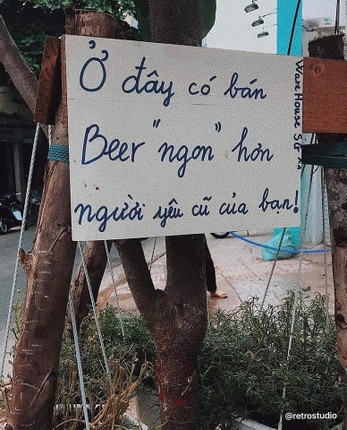 Ở đây có bán
Beer "ngon" hơn
người yêu cũ của bạn!
@retrostudio